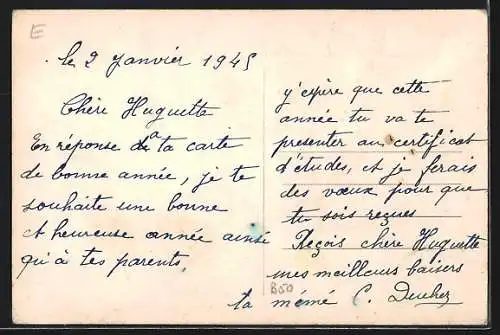 E
le 2 Janvier 1945
Chère Huguette
En réponse da ta carte
de bonne année, je te
souhaite une bonne
et heureuse année ainsi
qu'à tes parents,
y'éspère que cette
année tu va te
presenter au certificat
d'études, et je ferais
des vœux pour que
tu sois reçues
Reçois chère Huguette
mes meilleurs baisers
B50
ta mémé C.